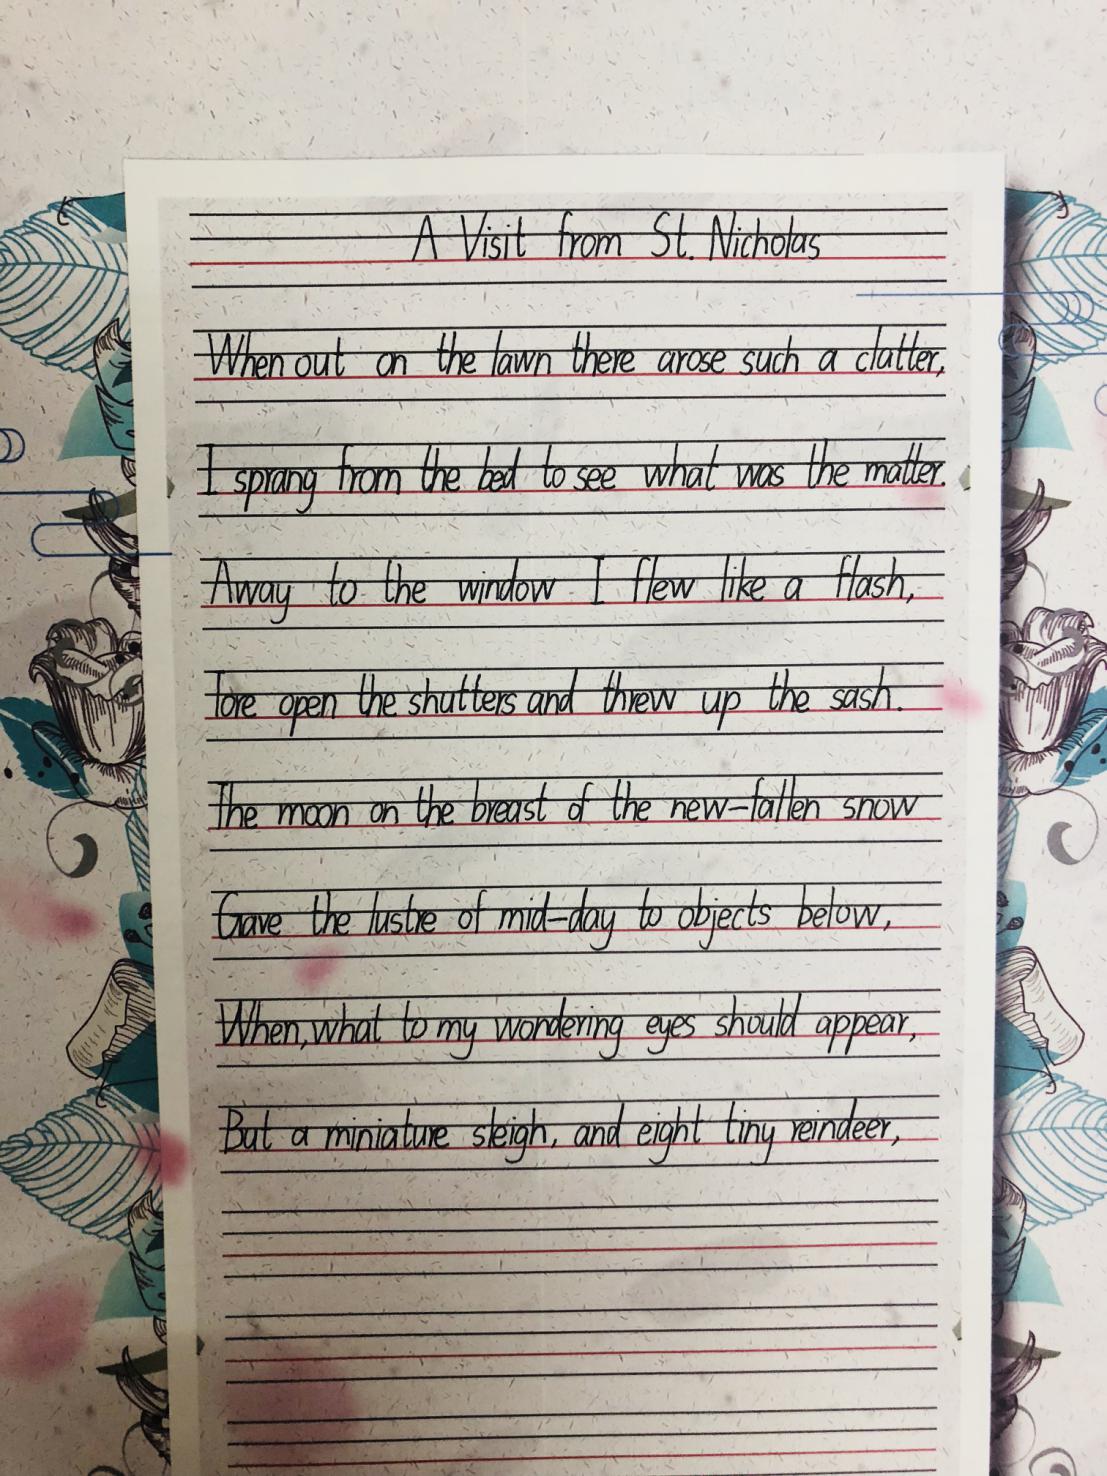 A Visit from St. Nicholas
When out on the lawn there arose such a clatter,
I sprang from the bed to see what was the matter.
Away to the window I flew like a flash,
Tore open the shutters and threw up the sash.
The moon on the breast of the new-fallen snow
Gave the lustre of mid-day to objects below,
When, what to my wondering eyes should appear,
But a miniature sleigh, and eight tiny reindeer,